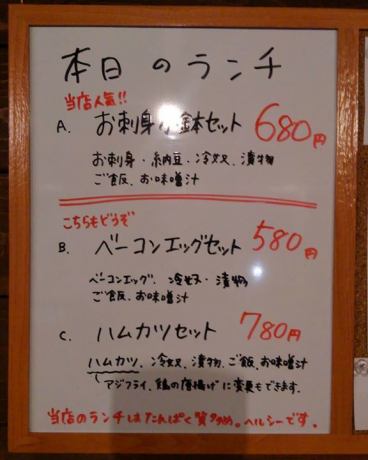 本日のランチ
当店人気!!
A. お刺身小鉢セット 680円
お刺身・納豆・冷奴、漬物
ご飯、お味噌汁
こちらもどうぞ
B. ベーコンエッグセット 580円
ベーコンエッグ、冷奴・漬物
ご飯、お味噌汁
C. ハムカツセット 780円
ハムカツ、冷奴、漬物、ご飯、お味噌汁
アジフライ、鶏の唐揚げに変更もできます。
当店のランチはたんぱく質多め。ヘルシーです。